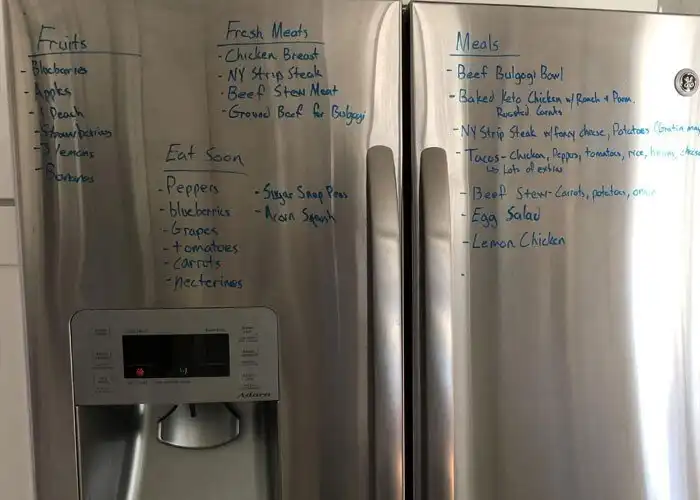 Fruits
- Blueberries
- Apples
- 1 Peach
- Strawberries
- 3 lemons
- Bananas
Fresh Meats
- Chicken Breast
- NY Strip Steak
- Beef Stew Meat
- Ground Beef for Bulgogi
Eat Soon
- Peppers
- blueberries
- Grapes
- tomatoes
- carrots
- necterines
- Sugar Snap Peas
- Acorn Squash
Meals
- Beef Bulgogi Bowl
- Baked Keto Chicken w/ Ranch & Parm,
Roasted Carrots
- NY Strip Steak w/ fancy cheese, Potatoes (Gratin
- Tacos - Chicken, Peppers, tomatoes, rice, beans, cheese
Lots of extras
- Beef Stew - Carrots, potatoes, onion
- Egg Salad
- Lemon Chicken
-
GE
Adora